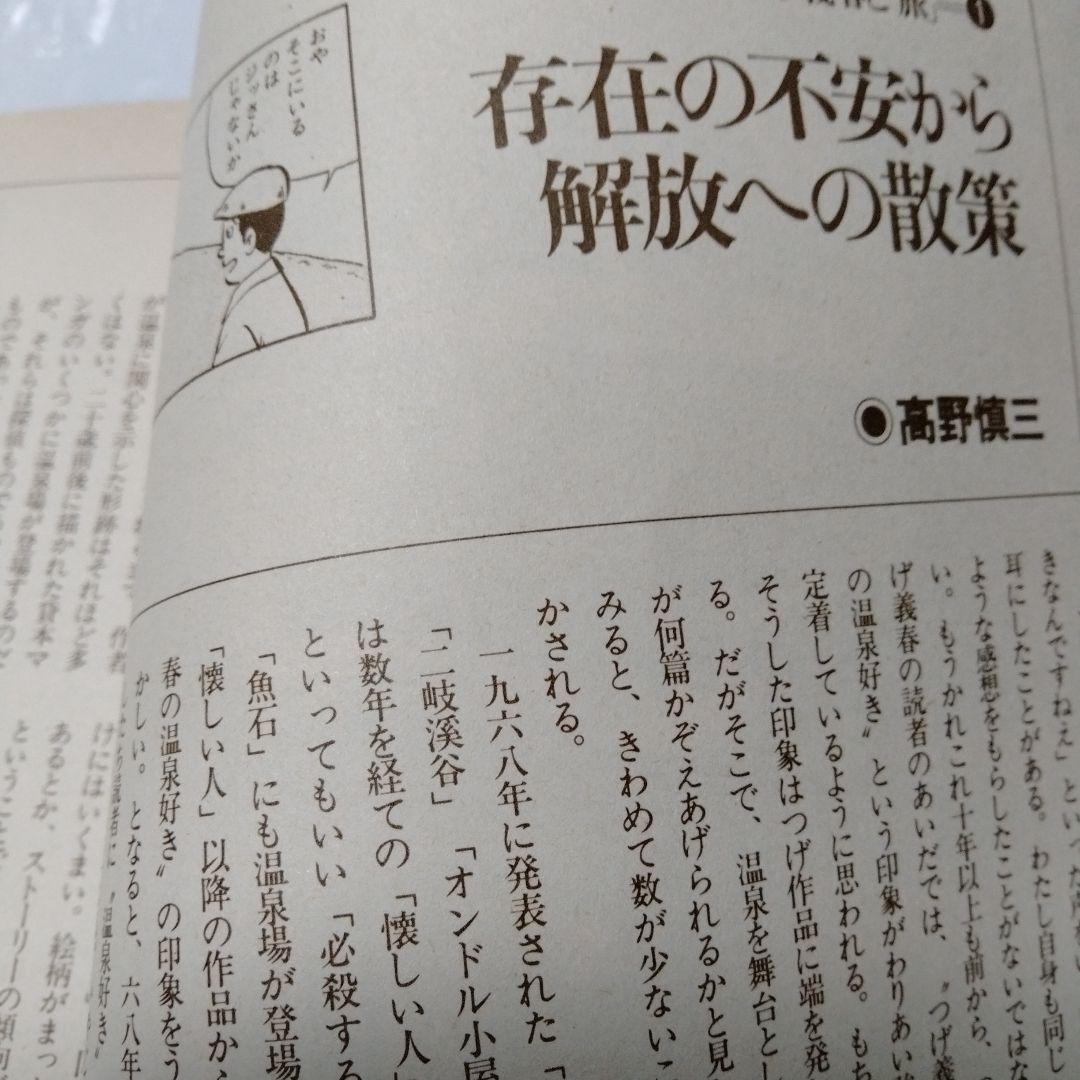 旅』―❶
存在の不安から
解放への散策
おや
そこにいる
のは
ジッさん
じゃないか
●高野慎三
きなんですねえ」といった
耳にしたことがある。わたし自身も同じ
ような感想をもらしたことがないではな
い。もうかれこれ十年以上も前から、
げ義春の読者のあいだでは、〝つげ義
の温泉好き〟という印象がわりあい
定着しているように思われる。もち
そうした印象はつげ作品に端を発
る。だがそこで、温泉を舞台とし
が何篇かぞえあげられるかと見
みると、きわめて数が少ないこ
かされる。
一九六八年に発表された「
「二岐渓谷」「オンドル小屋
は数年を経ての「懐しい人」
といってもいい「必殺する
「魚石」にも温泉場が登場
「懐しい人」以降の作品か
春の温泉好き〟の印象をう
かしい。となると、六八年
読者に〝温泉好き〟
作者
が温泉に関心を示した形跡はそれほど多
くはない。二十歳前後に描かれた貸本マ
ンガのいくつかに温泉場が登場するのだ
が、それらは探偵ものである
けにはいくまい。絵柄がまっ
あるとか、ストーリーの傾向
ということで